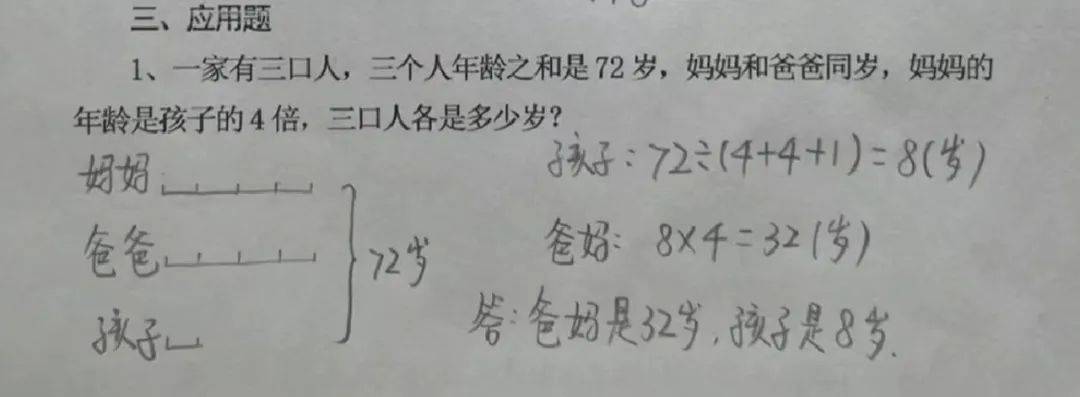 三、应用题
1、一家有三口人，三个人年龄之和是72岁，妈妈和爸爸同岁，妈妈的
年龄是孩子的4倍，三口人各是多少岁？
孩子：72÷(4+4+1)=8(岁)
妈妈
爸爸
72岁
爸妈：8×4=32(岁)
孩子
答：爸妈是32岁，孩子是8岁.